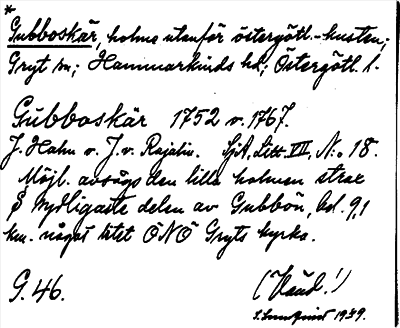 *
Gubboskär, holme utanför östergötl.-kusten;
Gryt sn; Hammarkinds hd; Östergötl. l.
Gubboskär 1752 v. 1767.
J. Hahn v. J. v. Rajalin. Sjk, Litt. VII, N:o 18.
Möjl. avsågs den lilla holmen strax
S sydligaste delen av Gubbön, bel. 9,1
km. något litet ÖNÖ Gryts kyrka.
G. 46. (Vänd!)
S. Lundquist 1939.